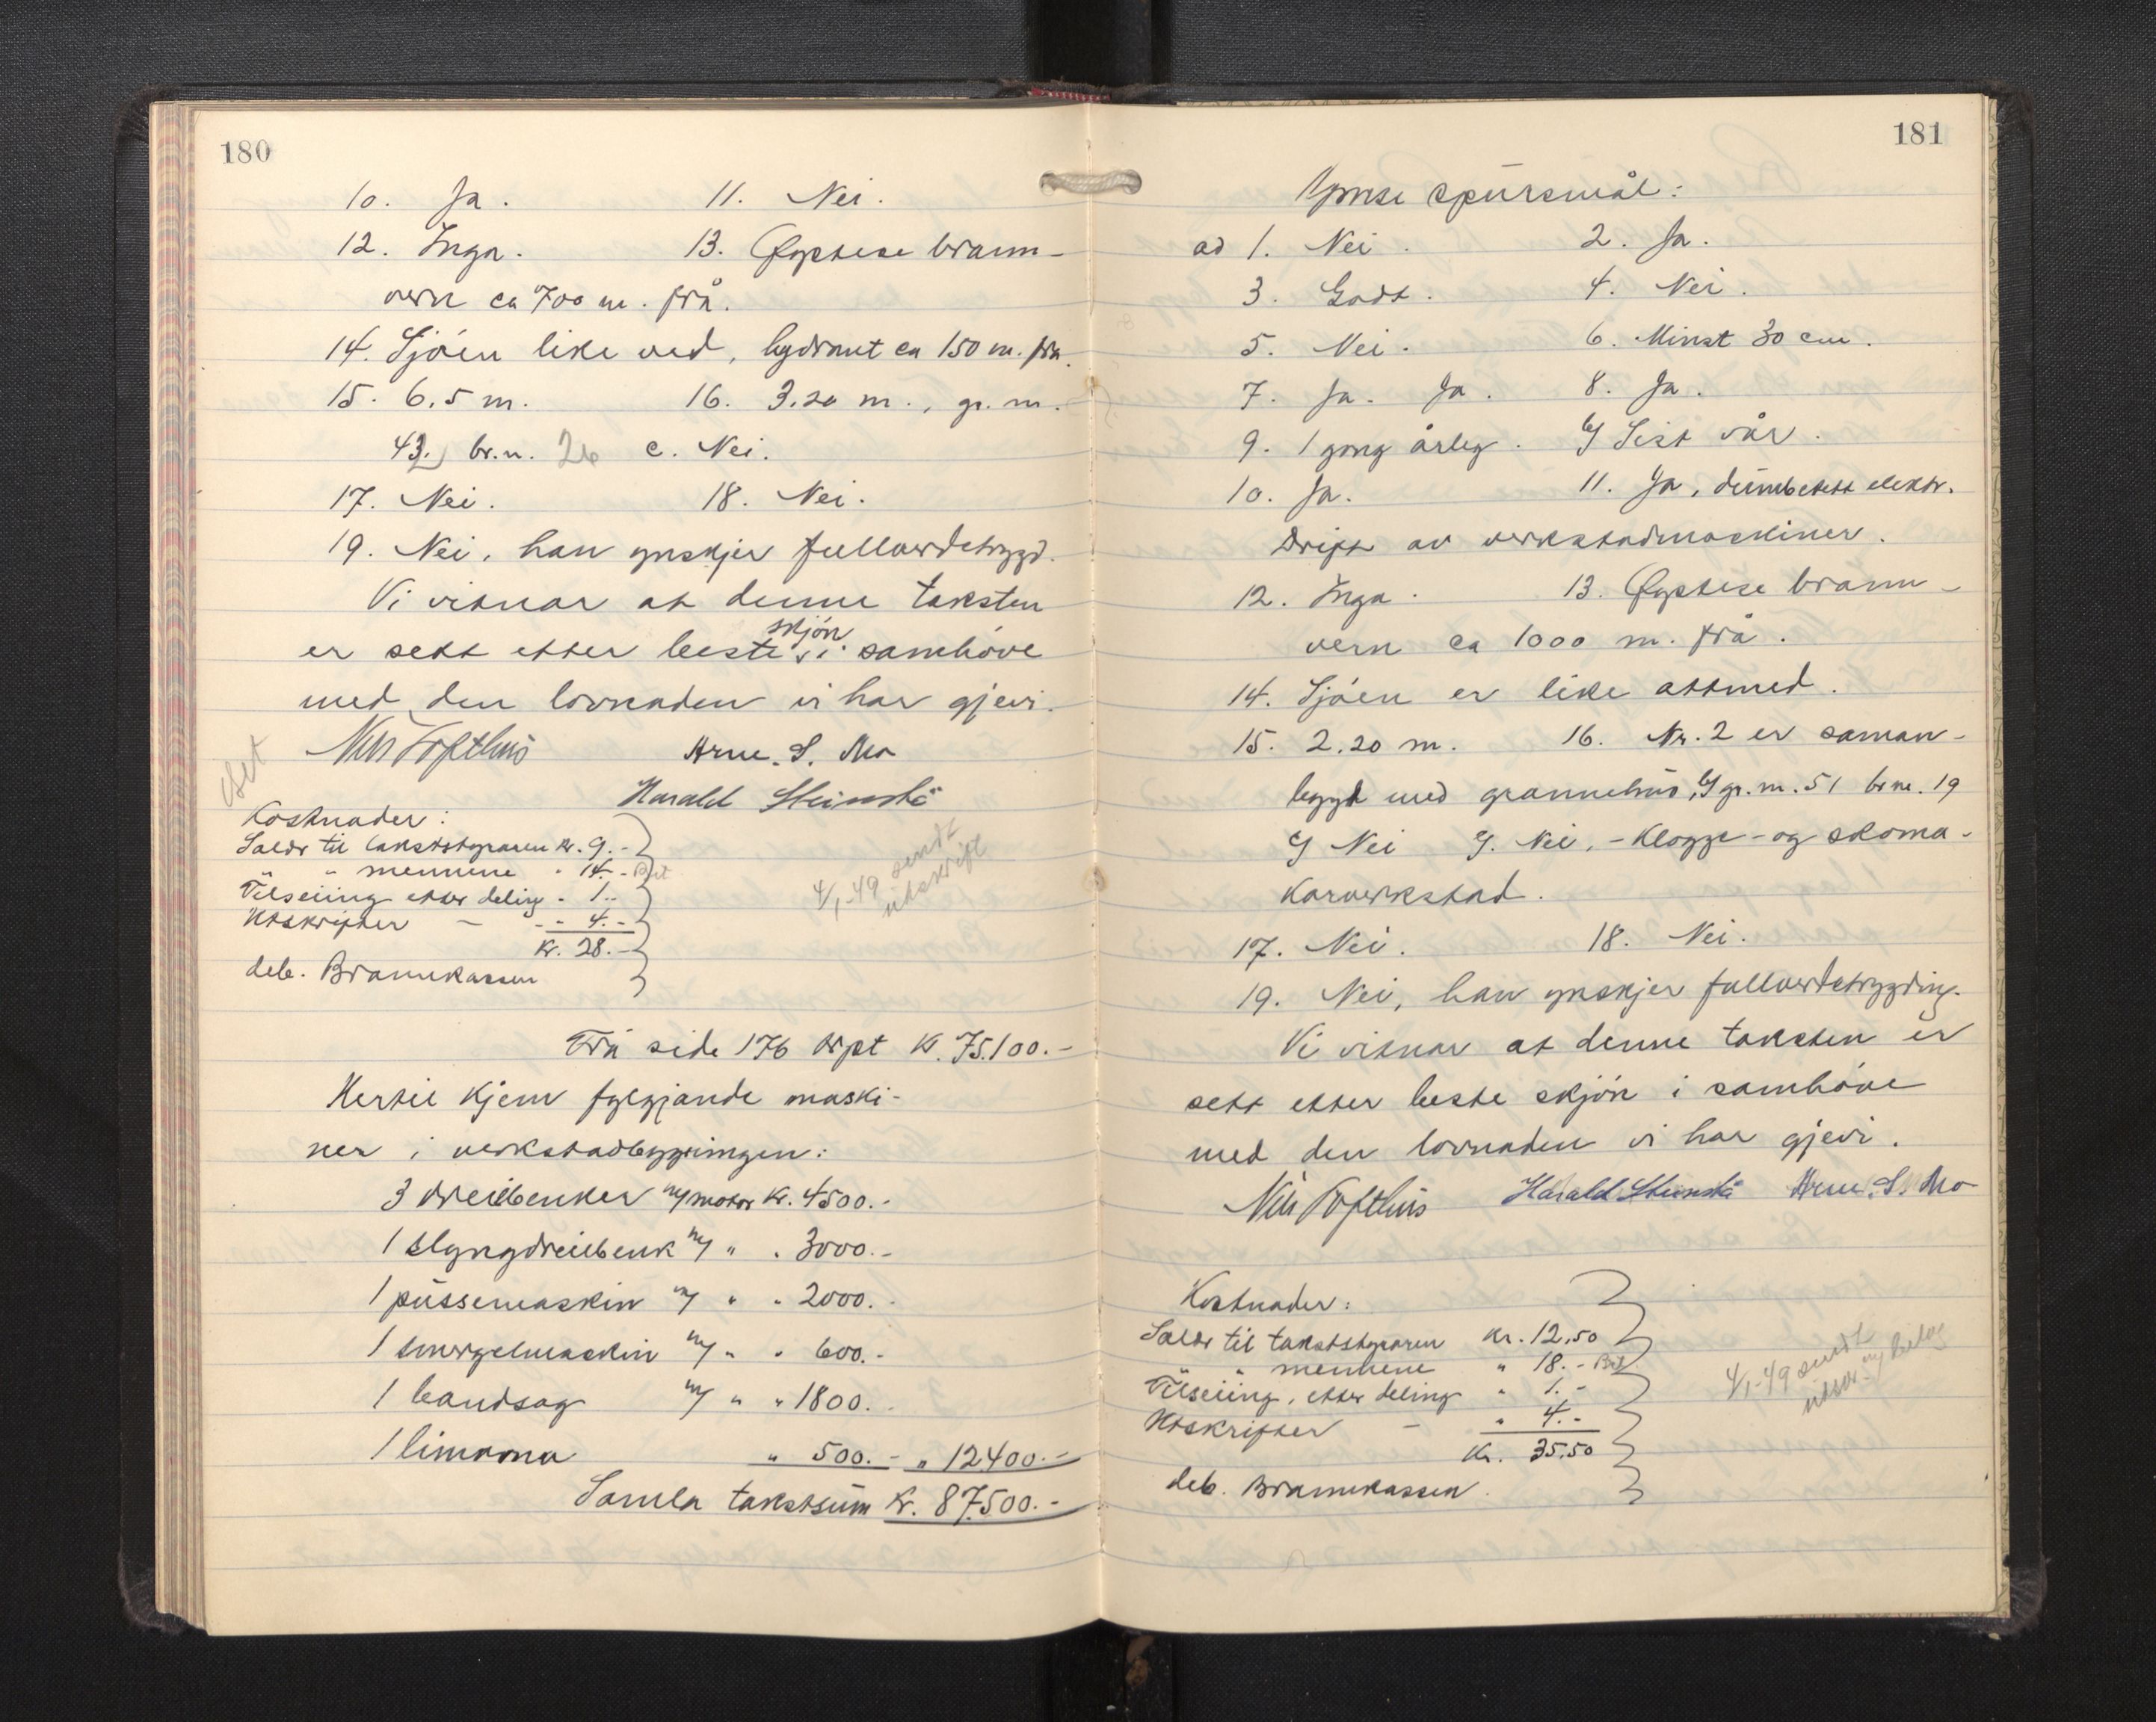 180
10. Ja. 11. Nei.
12. Inga. 13. Øystese brann-
vern ca 700 m. frå.
14. Sjöen like ved, hydrant ca 150 m. frå.
15. 6.5 m. 16. 3.20 m., gr. nr.
43, br.n. 26 c. Nei.
17. Nei. 18. Nei.
19. Nei, han ynskjer fullverdetrygd.
Vi vitnar at denne taksten
er sett etter beste skjön i samhöve
med den lovnaden vi har gjevi.
Nils Tofthus Arne. S. Mo
Harald Steinstø
Kostnader:
Salær til takststyraren kr. 9.-
" " mennene " 14.- Bet
Tilseiing etter deling " 1.-
Utskrifter - " 4.-
Kr. 28.-
deb. Brannkassen
4/1-49 sendt
utskrift
Frå side 176 kr. 75.100.-
Hertil kjem fylgjande maski-
ner i verkstadbygningen:
3 dreiebenker m/motor kr. 4500.-
1 slyngdreiebenk m/ " " 3000.-
1 pussemaskin m/ " " 2000.-
1 smergelmaskin m/ " " 600.-
1 bandsag m/ " " 1800.-
1 limkona " 500.- " 12400.-
Samla takstsum kr. 87.500.-
181
Ymse spursmål:
ad 1. Nei. 2. Ja.
3. Godt. 4. Nei.
5. Nei. 6. Minst 30 cm.
7. Ja. Ja. 8. Ja.
9. 1 gong årleg. b/ Sist vår.
10. Ja. 11. Ja, elektr.
Drift av verkstadmaskiner.
12. Inga. 13. Øystese brann-
vern ca 1000 m. frå.
14. Sjöen er like attmed.
15. 2.20 m. 16. Nr. 2 er saman-
bygd med grannehus, b/ gr. nr. 51 br nr. 19
c/ Nei d/. Nei, - Klogge- og skoma-
karverkstad.
17. Nei. 18. Nei.
19. Nei, han ynskjer fullverdetrygding.
Vi vitnar at denne taksten er
sett etter beste skjön i samhöve
med den lovnaden vi har gjevi.
Nils Tofthus Harald Steinstø Arne. S. Mo
Kostnader:
Salær til takststyraren kr. 12,50
" " mennene " 18.- Bet
Tilseiing, etter deling " 1.-
Utskrifter - " 4.-
Kr. 35.50
deb. Brannkassen.
4/1-49 sendt